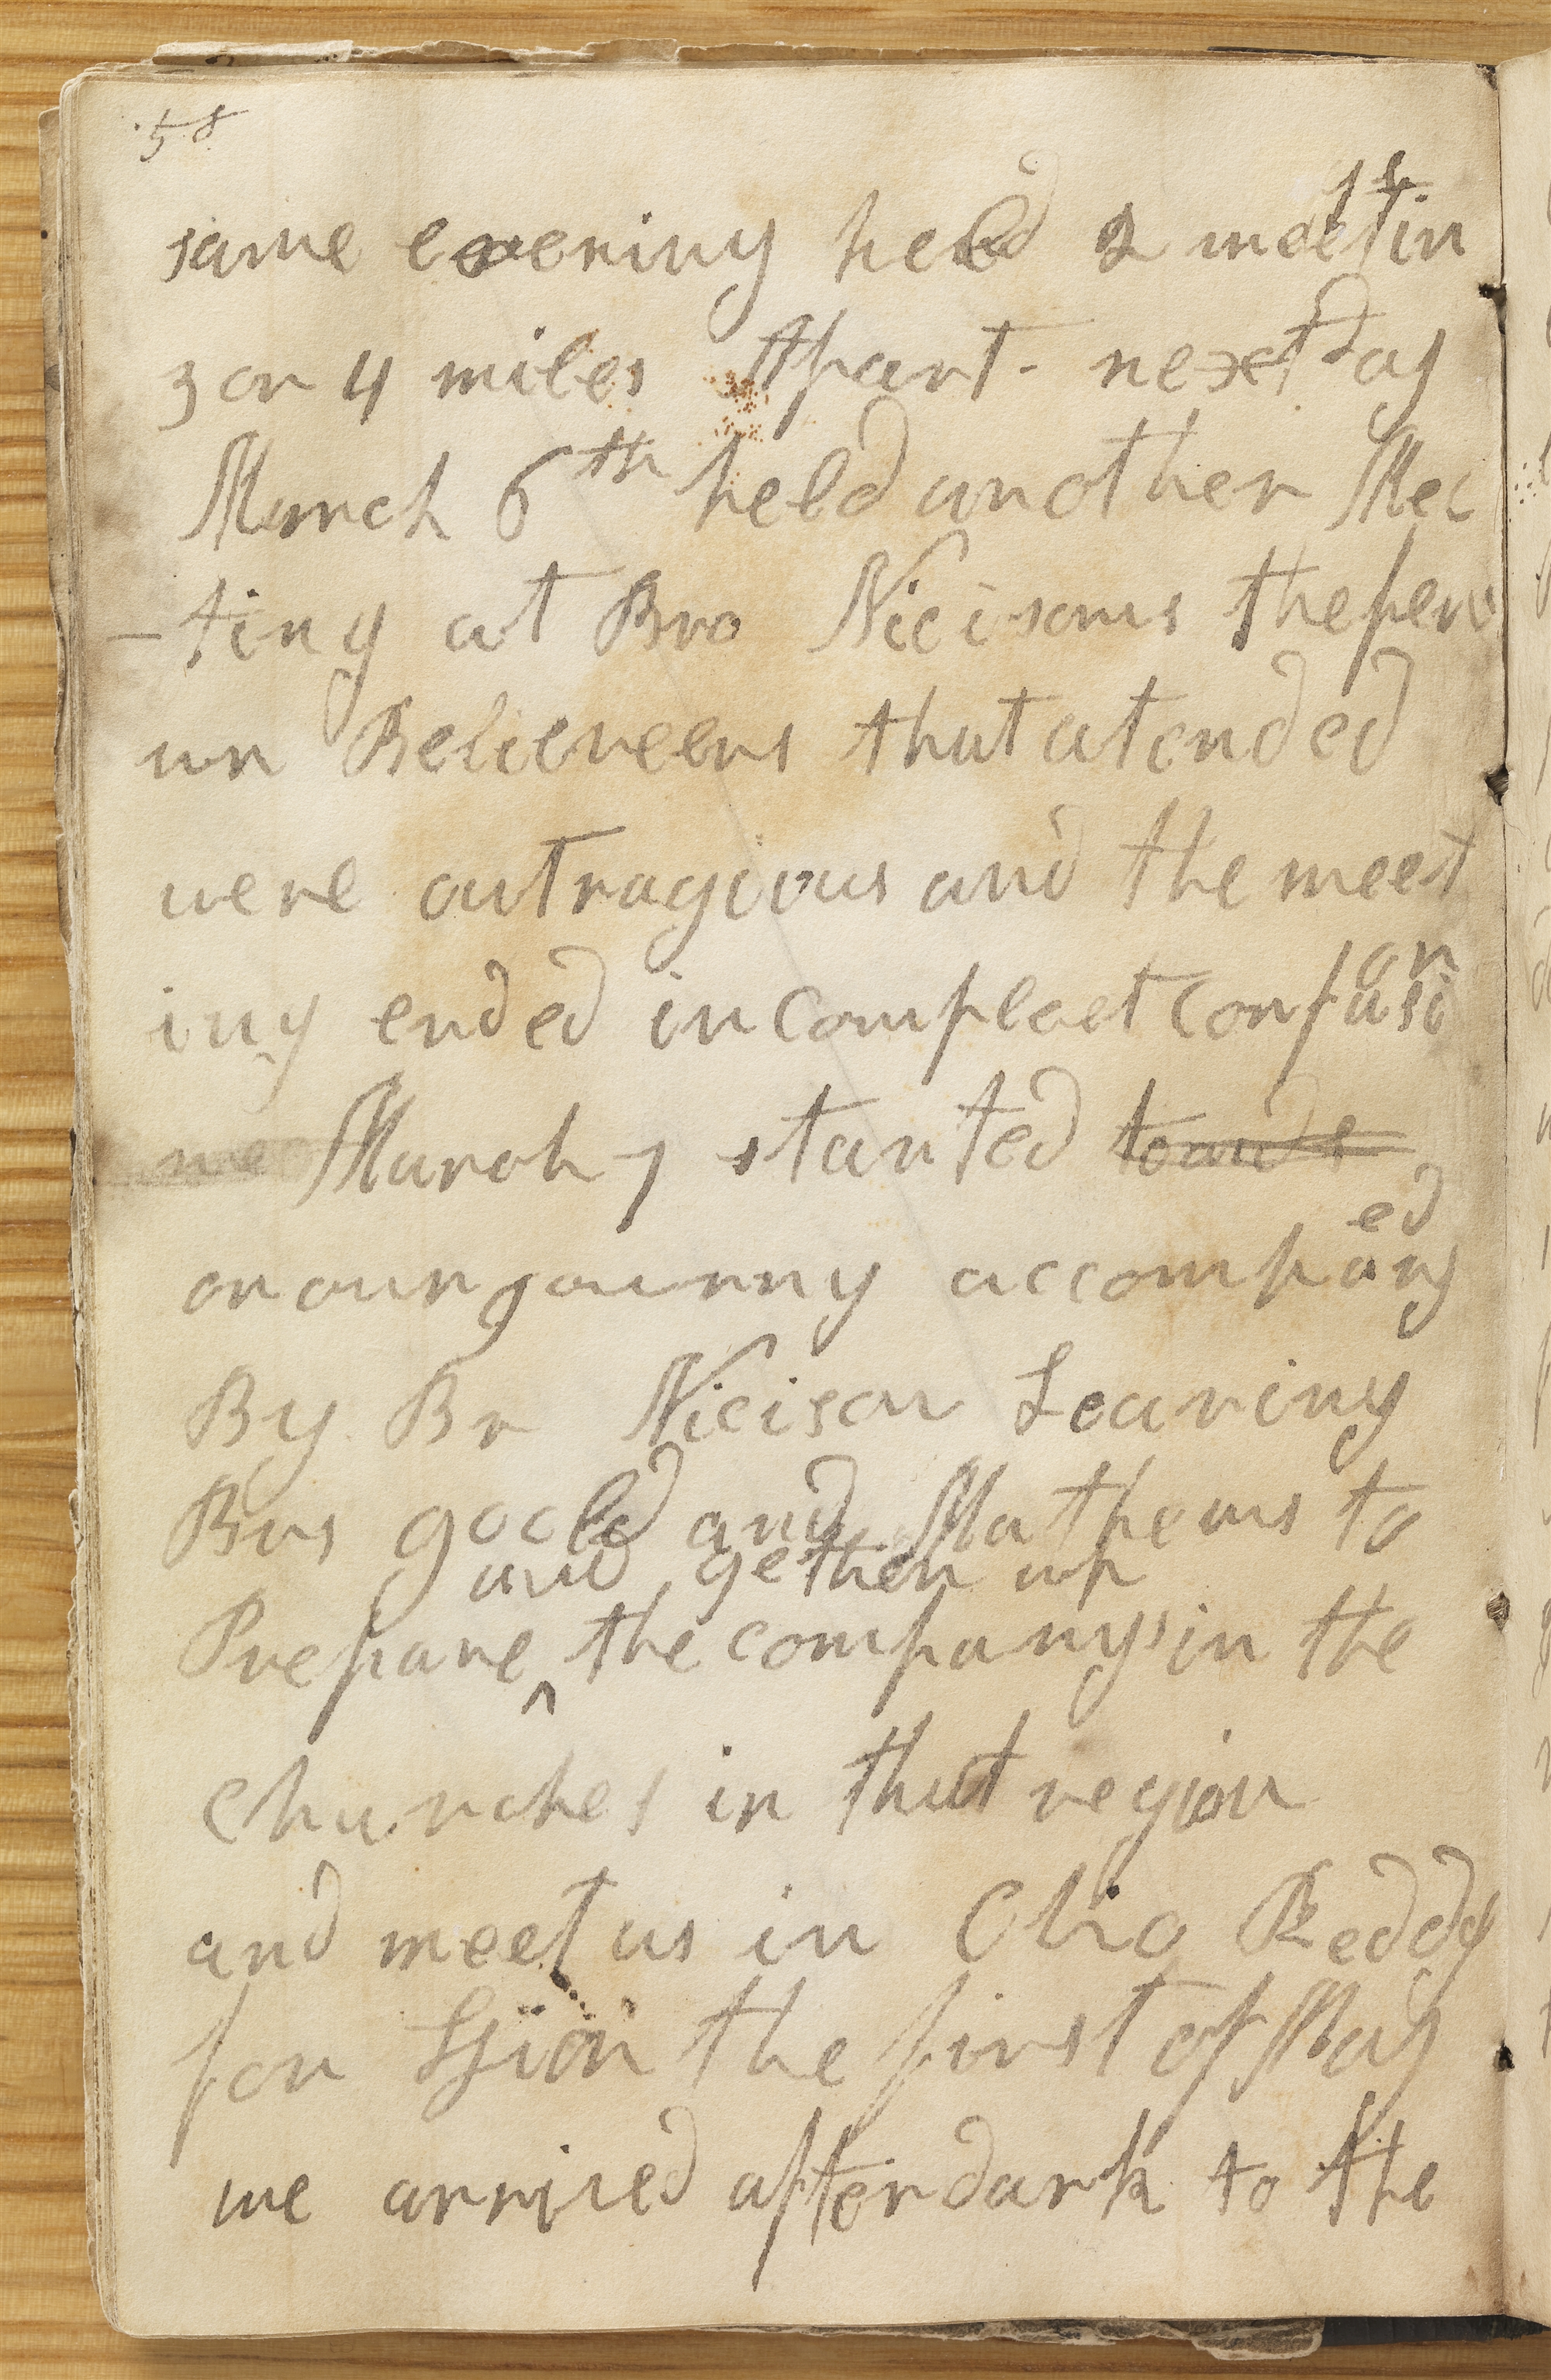 58
same evening held 2 meetin
gs
3 or 4 miles Apart - next day
March 6th held another Mee
-ting at Bro Nicisons the few
un Believeers that atended
were outragious and the meet
ing ended in compleet confusi
on
we March 7 started towards
on our journy accompany
ed
By Br Nicison Leaving
Brs goold and Mathews to
and gether up
Prepare ^ the companys in the
churches in that region
and meet us in Ohio Reddy
for Zion the first of May
we arrived after dark to the